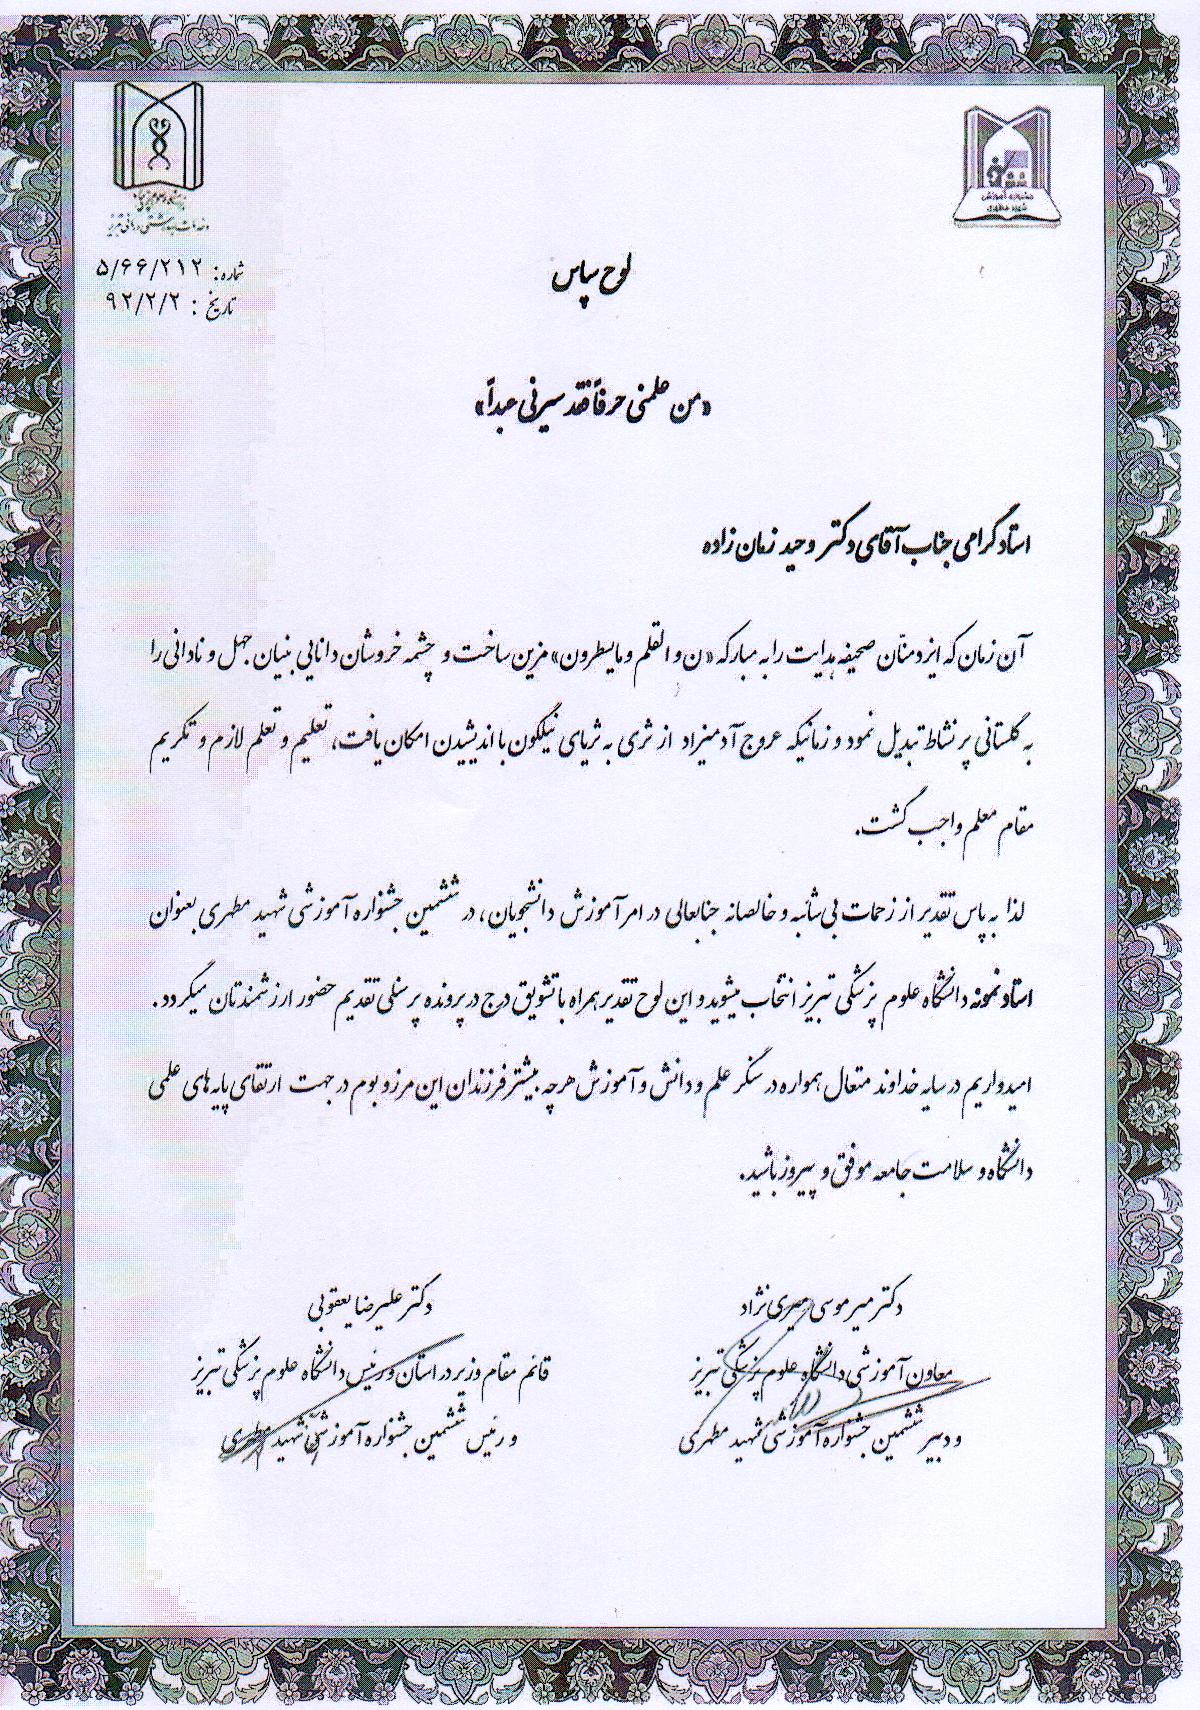 دانشگاه علوم پزشکی
و خدمات بهداشتی درمانی تبریز
جشنواره آموزشی
شهید مطهری
شماره: ۵/۶۶/۲۱۲
تاریخ: ۹۲/۲/۲
لوح سپاس
«من علمنی حرفاً فقد سیرنی عبداً»
استاد گرامی جناب آقای دکتر وحید زمان زاده
آن زمان که ایزد منّان صحیفه هدایت را به مبارکه «ن و القلم و ما یسطرون» مزین ساخت و چشمه خروشان دانایی بنیان جهل و نادانی را
به گلستانی پر نشاط تبدیل نمود و زمانیکه عروج آدمیزاد از ثری به ثریای نیلگون با اندیشیدن امکان یافت، تعلیم و تعلم لازم و تکریم
مقام معلم واجب گشت.
لذا به پاس تقدیر از زحمات بی شائبه و خالصانه جنابعالی در امر آموزش دانشجویان، در ششمین جشنواره آموزشی شهید مطهری بعنوان
استاد نمونه دانشگاه علوم پزشکی تبریز انتخاب میشوید و این لوح تقدیر همراه با تشویق درج در پرونده پرسنلی تقدیم حضور ارزشمندتان میگردد.
امیدواریم در سایه خداوند متعال همواره در سنگر علم و دانش و آموزش هرچه بیشتر فرزندان این مرز و بوم در جهت ارتقای پایه های علمی
دانشگاه و سلامت جامعه موفق و پیروز باشید.
دکتر میر موسی میری نژاد
معاون آموزشی دانشگاه علوم پزشکی تبریز
و دبیر ششمین جشنواره آموزشی شهید مطهری
دکتر علیرضا یعقوبی
قائم مقام وزیر در استان و رئیس دانشگاه علوم پزشکی تبریز
و رئیس ششمین جشنواره آموزشی شهید مطهری